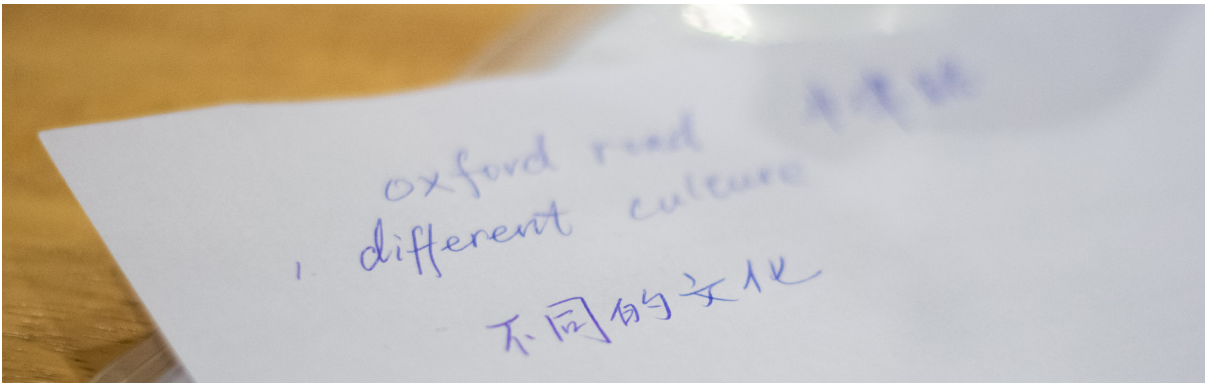 oxford road
1. different culture
不同的文化